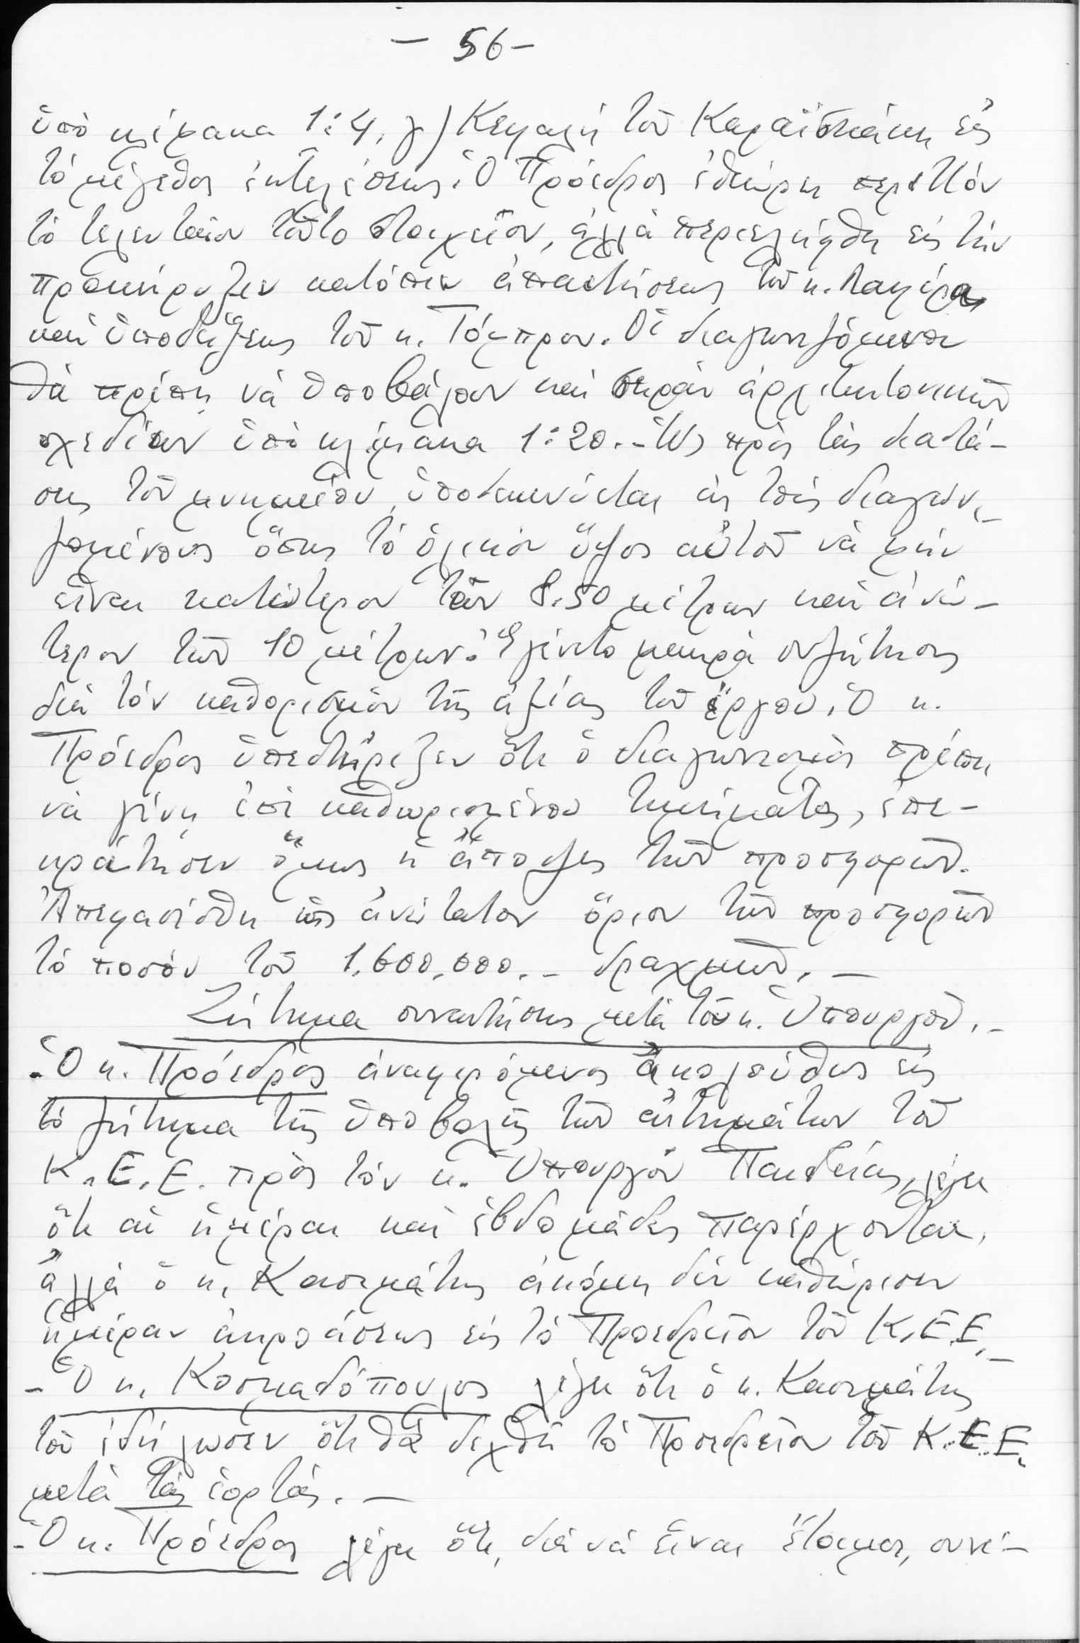 - 56 -
ὑπὸ κλίμακα 1:4. γ) Κεφαλή τοῦ Καραϊσκάκη εἰς
τό μέγεθος ἐκτελέσεως. Ὁ Πρόεδρος ἐθεώρει περιττόν
τό τελευταῖον τοῦτο στοιχεῖον, ἀλλά περιελήφθη εἰς τήν
προκήρυξιν κατόπιν ἀπαιτήσεως τοῦ κ.
καί ὑποδείξεως τοῦ κ. Τόμπρου. Οἱ διαγωνιζόμενοι
θά πρέπει νά ὑποβάλουν καί σειράν ἀρχιτεκτονικῶν
σχεδίων ὑπό κλίμακα 1:20.- Ὡς πρός τάς διαστά-
σεις τοῦ μνημείου ὑποδεικνύεται εἰς τούς διαγωνι-
ζομένους ὅπως τό ὁλικόν ὕψος αὐτοῦ νά μήν
εἶναι κατώτερον τῶν 8.50 μέτρων καί ἀνώ-
τερον τῶν 10 μέτρων. Ἐγένετο μακρά συζήτησις
διά τόν καθορισμόν τῆς ἀξίας τοῦ ἔργου. Ὁ κ.
Πρόεδρος ὑπεστήριξεν ὅτι ὁ διαγωνισμός πρέπει
νά γίνῃ ἐπί καθωρισμένου τιμήματος, ἐπε-
κράτησεν ὅμως ἡ ἄποψις τῶν προσφορῶν.
Ἀπεφασίσθη ὡς ἀνώτατον ὅριον τῶν προσφορῶν
τό ποσόν τῶν 1.600.000.- δραχμῶν. -
Ζήτημα συναντήσεως μετά τοῦ κ. Ὑπουργοῦ. -
- Ὁ κ. Πρόεδρος ἀναφερόμενος ἀκολούθως εἰς
τό ζήτημα τῆς ὑποβολῆς τῶν αἰτημάτων τοῦ
Κ.Ε.Ε. πρός τόν κ. Ὑπουργόν Παιδείας, λέγει
ὅτι αἱ ἡμέραι καί ἑβδομάδες παρέρχονται,
ἀλλά ὁ κ. Κασιμάτης ἀκόμη δέν καθώρισεν
ἡμέραν ἀκροάσεως εἰς τό Προεδρεῖον τοῦ Κ.Ε.Ε. -
- Ὁ κ. Κοσμαδόπουλος λέγει ὅτι ὁ κ. Κασιμάτης
τοῦ ἐδήλωσεν ὅτι θά δεχθῇ τό Προεδρεῖον τοῦ Κ.Ε.Ε.
μετά τάς ἑορτάς. -
- Ὁ κ. Πρόεδρος λέγει ὅτι, διά νά εἶναι ἕτοιμοι, συνέ-